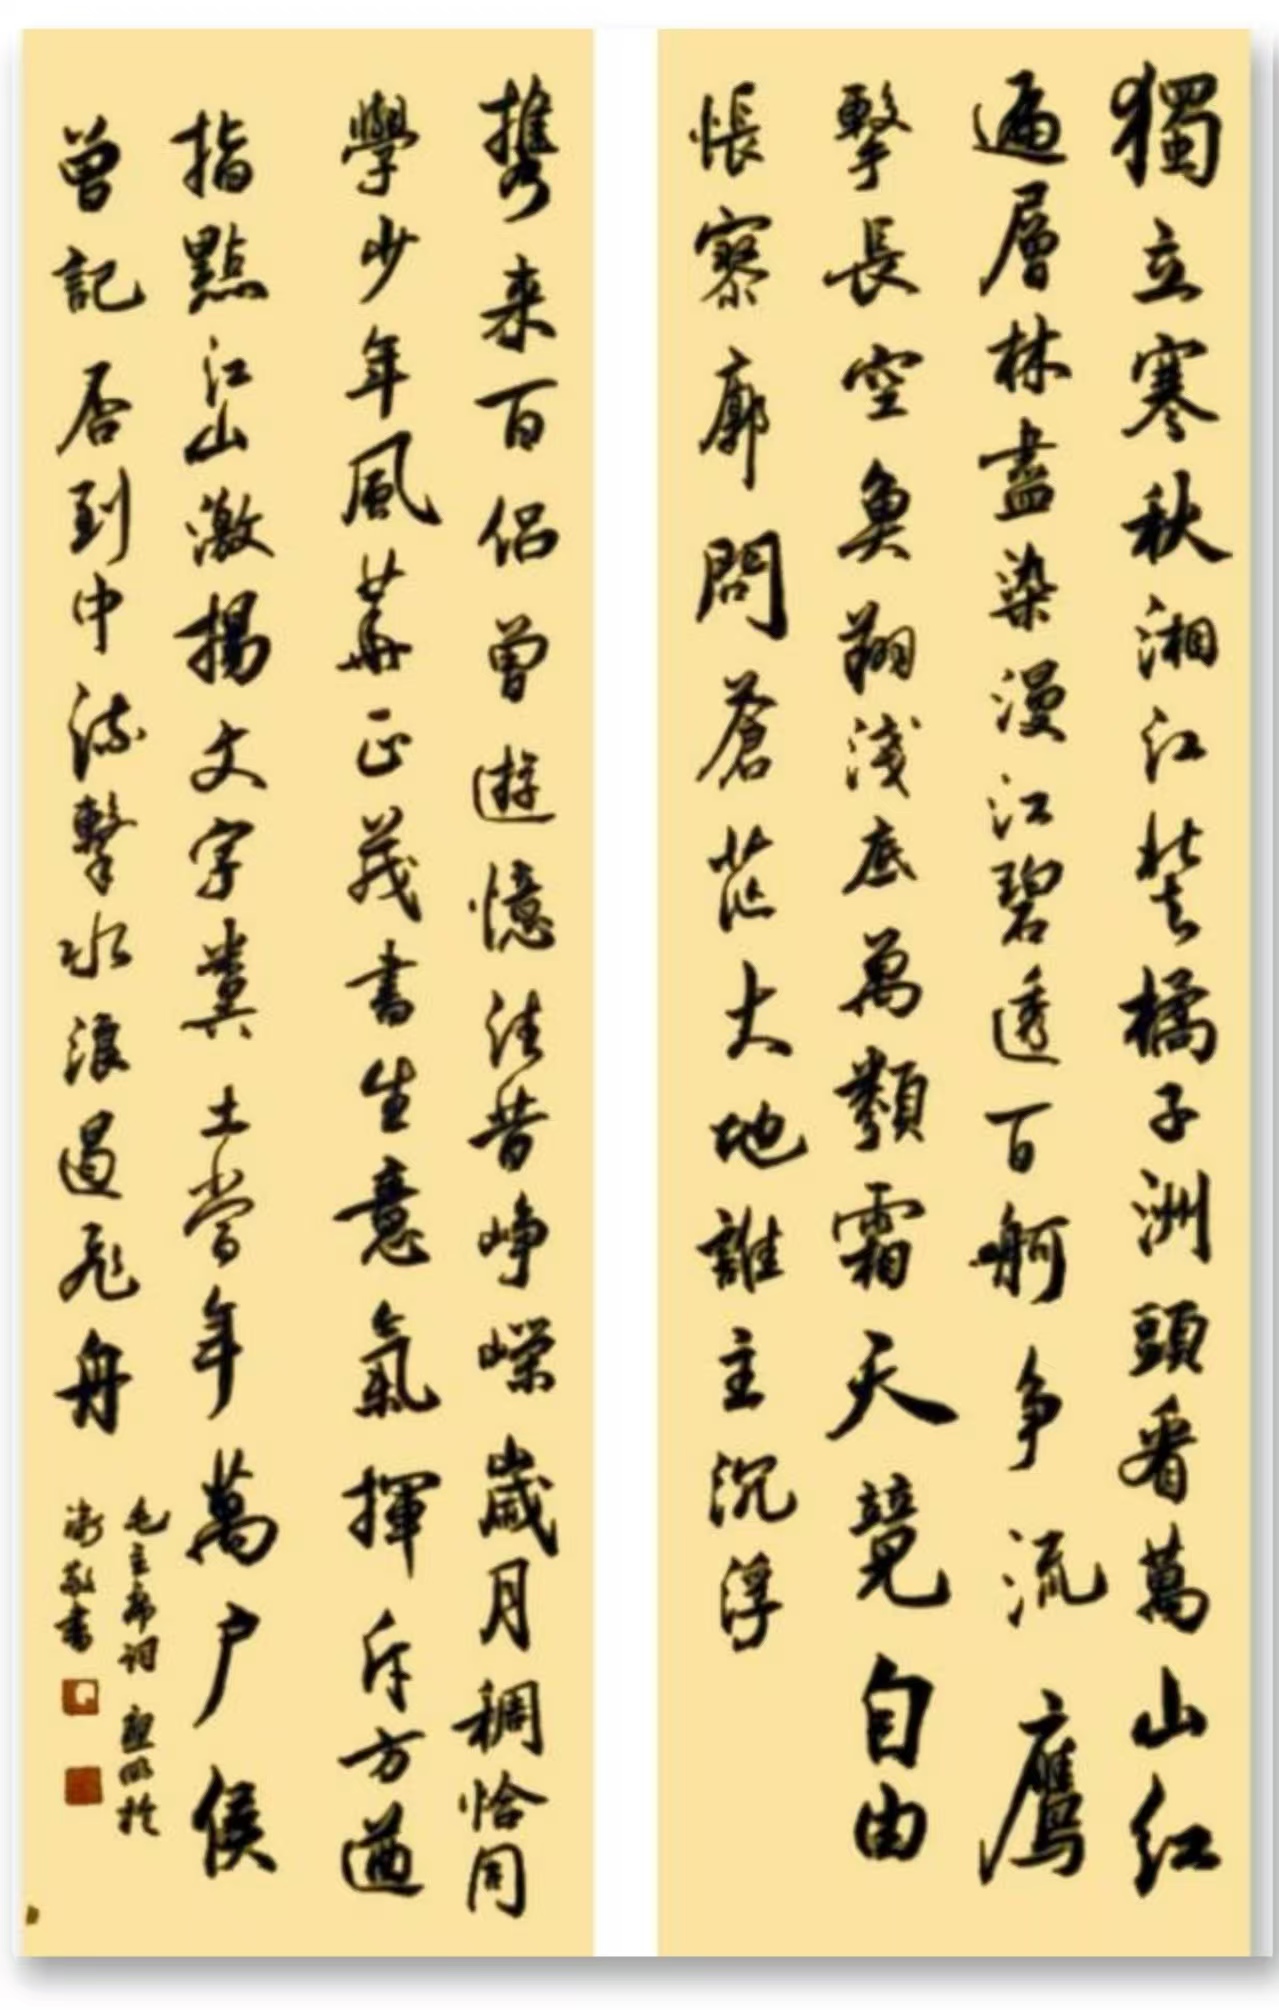 獨立寒秋湘江北去橘子洲頭看萬山紅
遍層林盡染漫江碧透百舸争流鹰
擊長空魚翔淺底萬類霜天競自由
悵寥廓問蒼茫大地誰主沉浮
攜来百侣曾遊憶往昔峥嵘歲月稠恰同
學少年風華正茂書生意氣揮斥方遒
指點江山激揚文字糞土當年萬户侯
曾記否到中流擊水浪遏飛舟
毛主席词
書